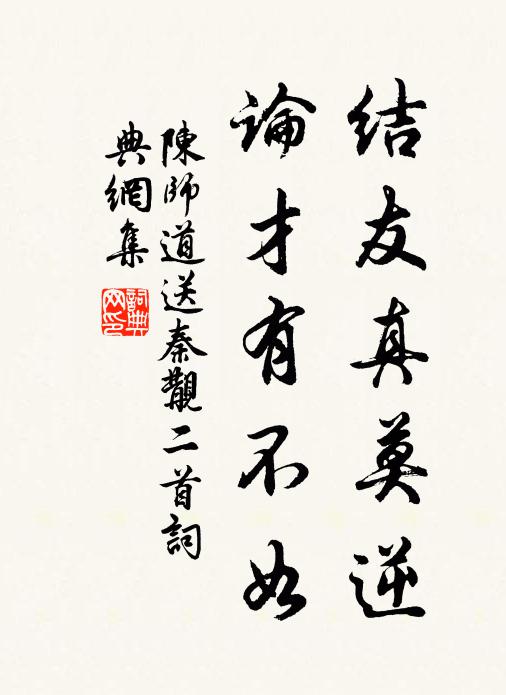 結友真莫逆
論才有不如
陳師道送秦觀二首詞
典網集
詞典
网印